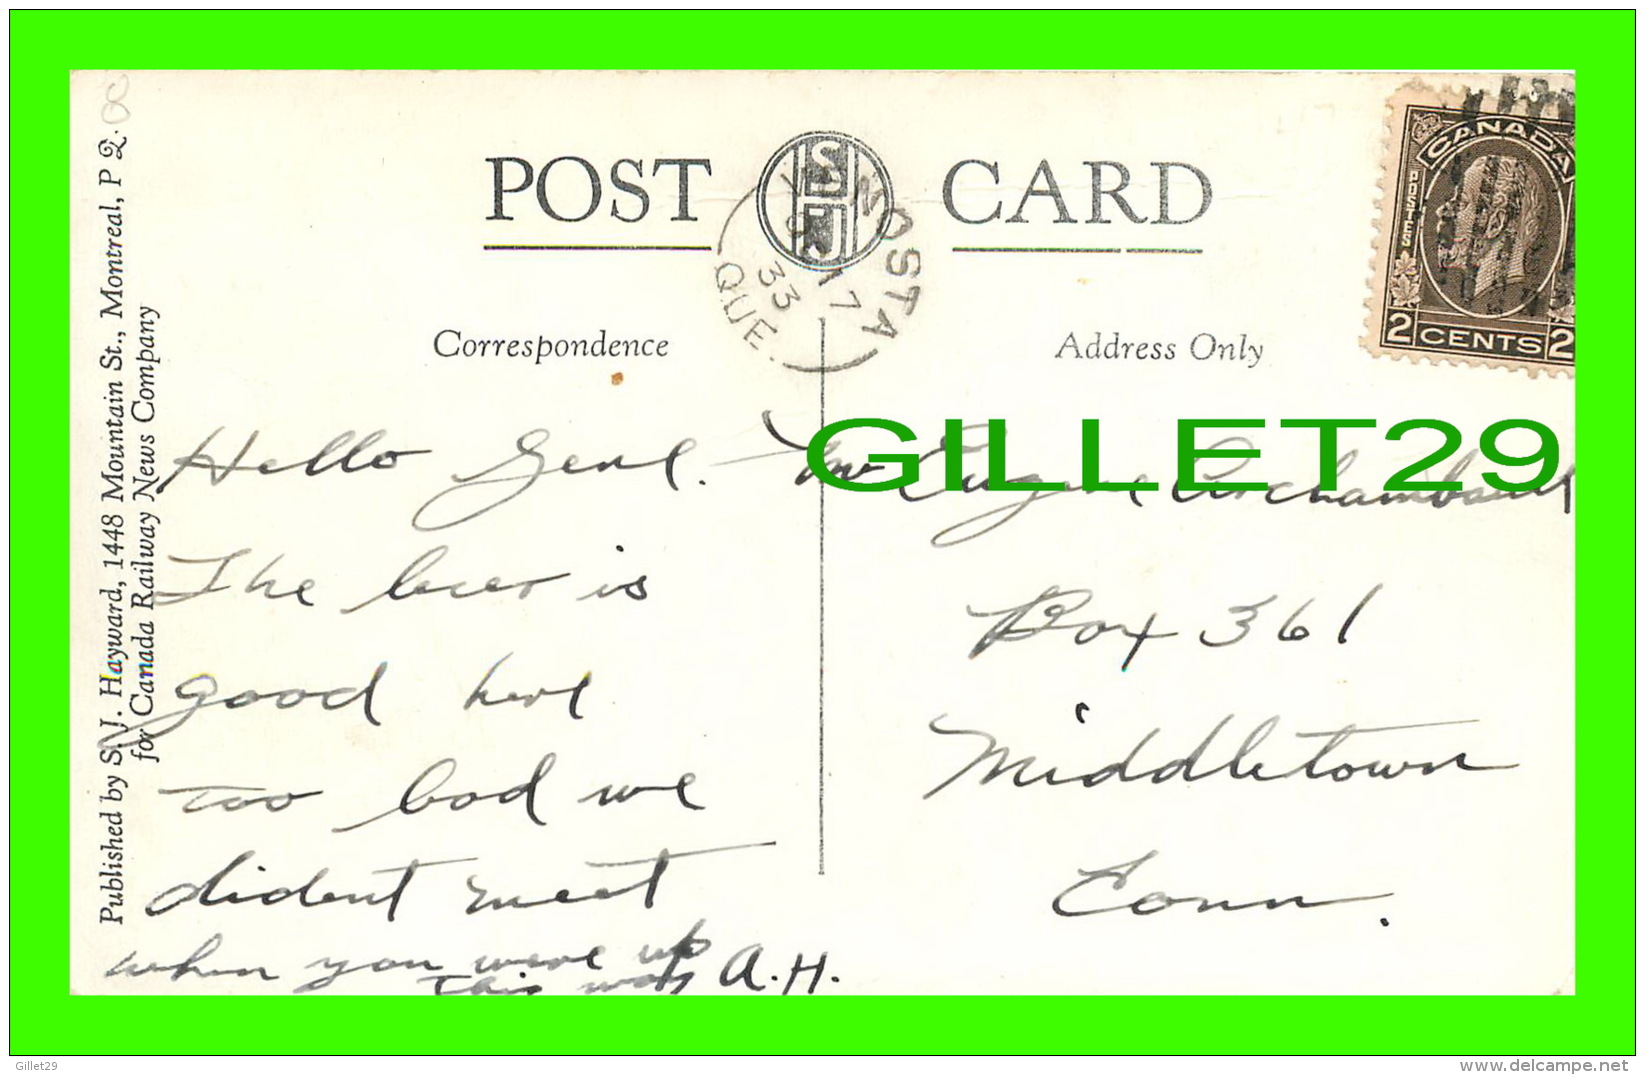 POST CARD
Published by S. J. Hayward, 1448 Mountain St., Montreal, P Q.
for Canada Railway News Company
Correspondence
Address Only
OSTA
17
33
QUE.
CANADA
POSTES
2 CENTS 2
GILLET29
Hello Gene.
The beer is
good here
too bad we
dident meet
when you were up
this way A.H.
Mr Eugene Archambault
Box 361
Middletown
Conn.
Gillet29
www.delcampe.net